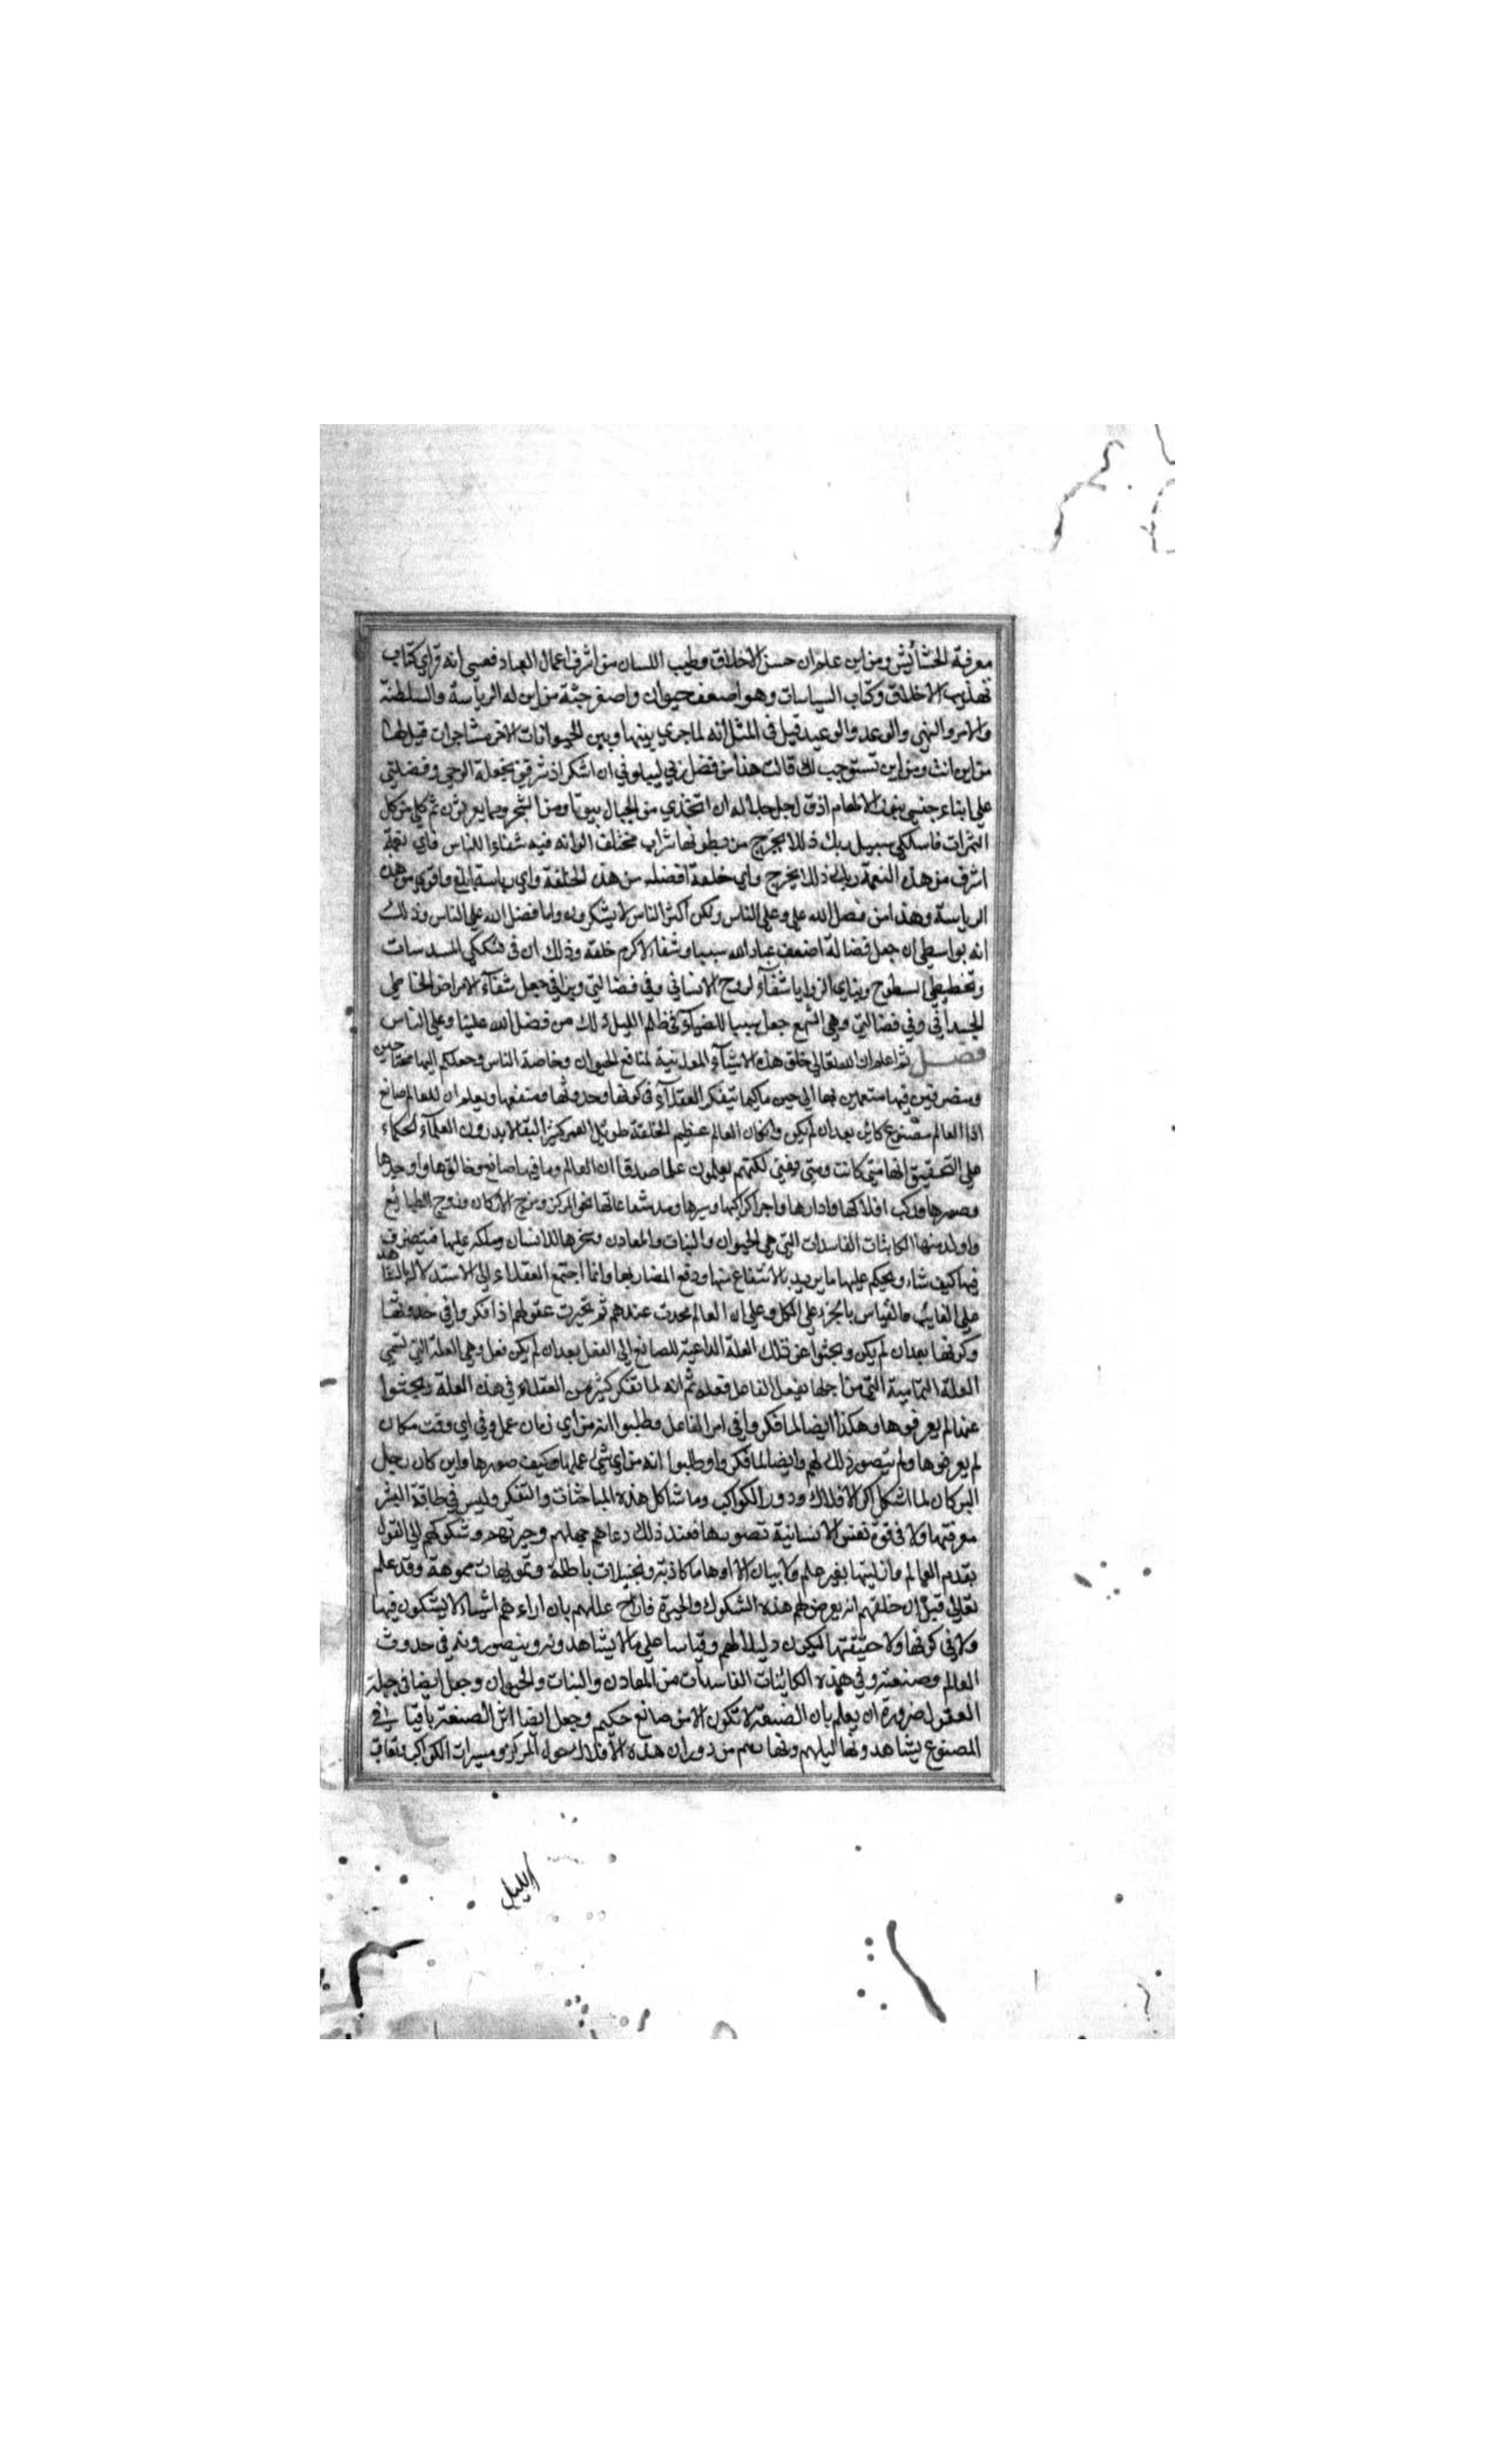 معرفة الحشائش ومن اين علم ان حسن الاخلاق وطيب اللسان من اشرف اعمال العباد فعسى انه قراي كتاب
تهذيب الاخلاق وكتاب السياسات وهو اضعف حيوان واصغر جثة من اين له الرياسة والسلطنة
والامر والنهي والوعد والوعيد قيل في المثل انه لما جري بينها وبين الحيوانات الاخر مشاجرات قيل لها
من اين انت ومن اين تستوجب لك قالت هذا من فضل ربي ليبلوني ان اشكر اذ شرفني بجعله الوحي وفضلني
علي ابناء جنسي بنعمة الالهام اذ قال جل جلاله ان اتخذي من الجبال بيوتا ومن الشجر ومما يعرشون ثم كلي من كل
الثمرات فاسلكي سبيل ربك ذللا يخرج من بطونها شراب مختلف الوانه فيه شفاء للناس فاي نعمة
اشرف من هذه النعمة ربك ذللا يخرج واي خلعة افضل من هذه الخلعة واي رياسة ابلغ واقوى من هذه
الرياسة وهذا من فضل الله علي وعلى الناس ولكن اكثر الناس لا يشكرون واما فضل الله علي الناس وذلك
انه بواسطي ان جعل فضالة اضعف عباد الله سببا وشفاء لاكرم خلقه وذلك ان في تشكلي المسدسات
وتخطيطي السطوح وبناي الزوايا شفاء لروح الانساني وفي فضالتي وبزاقي جعل شفاء الامراض
الجسداني وفي فضالتي وهي الشمع جعل سببا للضياء في ظلم الليل ذلك من فضل الله علينا وعلى الناس
فصل ثم اعلم ان الله تعالي خلق هذه الاشياء المعدنية لمنافع الحيوان وخاصة الناس وجعلكم اليها محتاجين
ومتصرفين فيها متمتعين بها الى حين ما كيما يتفكر العقلاء في كونها وحدوثها ومنفعها ويعلم ان للعالم صانع
اذ العالم مصنوع كائن بعد ان لم يكن وان كان العالم عظيم الخلقة طويل العمر كثير البقا لا يدرون العلماء الحكماء
على التحقيق انها متى كانت ومتى وفنى لكنهم يعلمون علما صدقا ان العالم وما فيها صانع وخالقها واوجدها
وصورها وركب افلاكها وادارها واجرا كواكبها وسيرها ومد شعاعاتها نحو المركز ومزج الاركان وزوج الطبايع
واولد منها الكائنات الفاسدات التي هي الحيوان والنبات والمعادن وسخرها للانسان وملكه عليها فيتصرف
فيها كيف شاء ويحكم عليها ما يريد بالانتفاع منها ودفع المضار بها وانما اجتمع العقلاء الي الاستدلال بالشاهد
على الغايب والقياس بالجزء على الكل وعلى ان العالم محدث عندهم ثم تحيرت عقولهم اذا فكروا في حدوثها
وكونها بعد ان لم يكن وبحثوا عن ذلك العلة الداعية للصانع الى الفعل بعد ان لم يكن فعل وهي العلة التي تسمي
العلة التمامية التي من اجلها يفعل الفاعل فعله ثم انه لما تفكر كثير من العقلاء في هذه العلة وبحثوا
عنها لم يعرفوها وهكذا ايضا لما فكروا في امر الفاعل وطلبوا انه من اي زمان عمل وفي اي وقت مكان
لم يعرفوها ولم يتصور ذلك لهم وايضا لما فكروا وطلبوا انه من اي شئ عملها وكيف صورها واين كان رجل
البركان لما اشكل اكر الافلاك ودور الكواكب وما شاكل هذه المباحثات والتفكر وليس في طاقة البشر
معرفتها ولا في قوة نفس الانسانية تصورها فعند ذلك دعاهم جهلهم وحيرتهم وشكوكهم الى القول
بقدم العالم وازليتها بغير علم ولا بيان الا اوهاما كاذبة وتخيلات باطلة وتمويهات مموهة وقد علم
تعالى قبل ان خلقهم انه يعرض لهم هذه الشكوك والحيرة فازاح عللهم بان اراءهم اشياء لا يشكون فيها
ولا في كونها ولا حقيقتها ليكون دليلا لهم وقياسا على ما لا يشاهدونه ويتصورونه في حدوث
العالم وصنعته وفي هذه الكائنات الفاسدات من المعادن والنبات والحيوان وجعل ايضا في جبلة
العقول ضرورة ان يعلم بان الصنعة لا تكون الا من صانع حكيم وجعل ايضا اثر الصنعة باقيا في
المصنوع يشاهدونها ليلهم ونهارهم من دوران هذه الافلاك حول المركز ومسيرات الكواكب وتعاقب
الليل